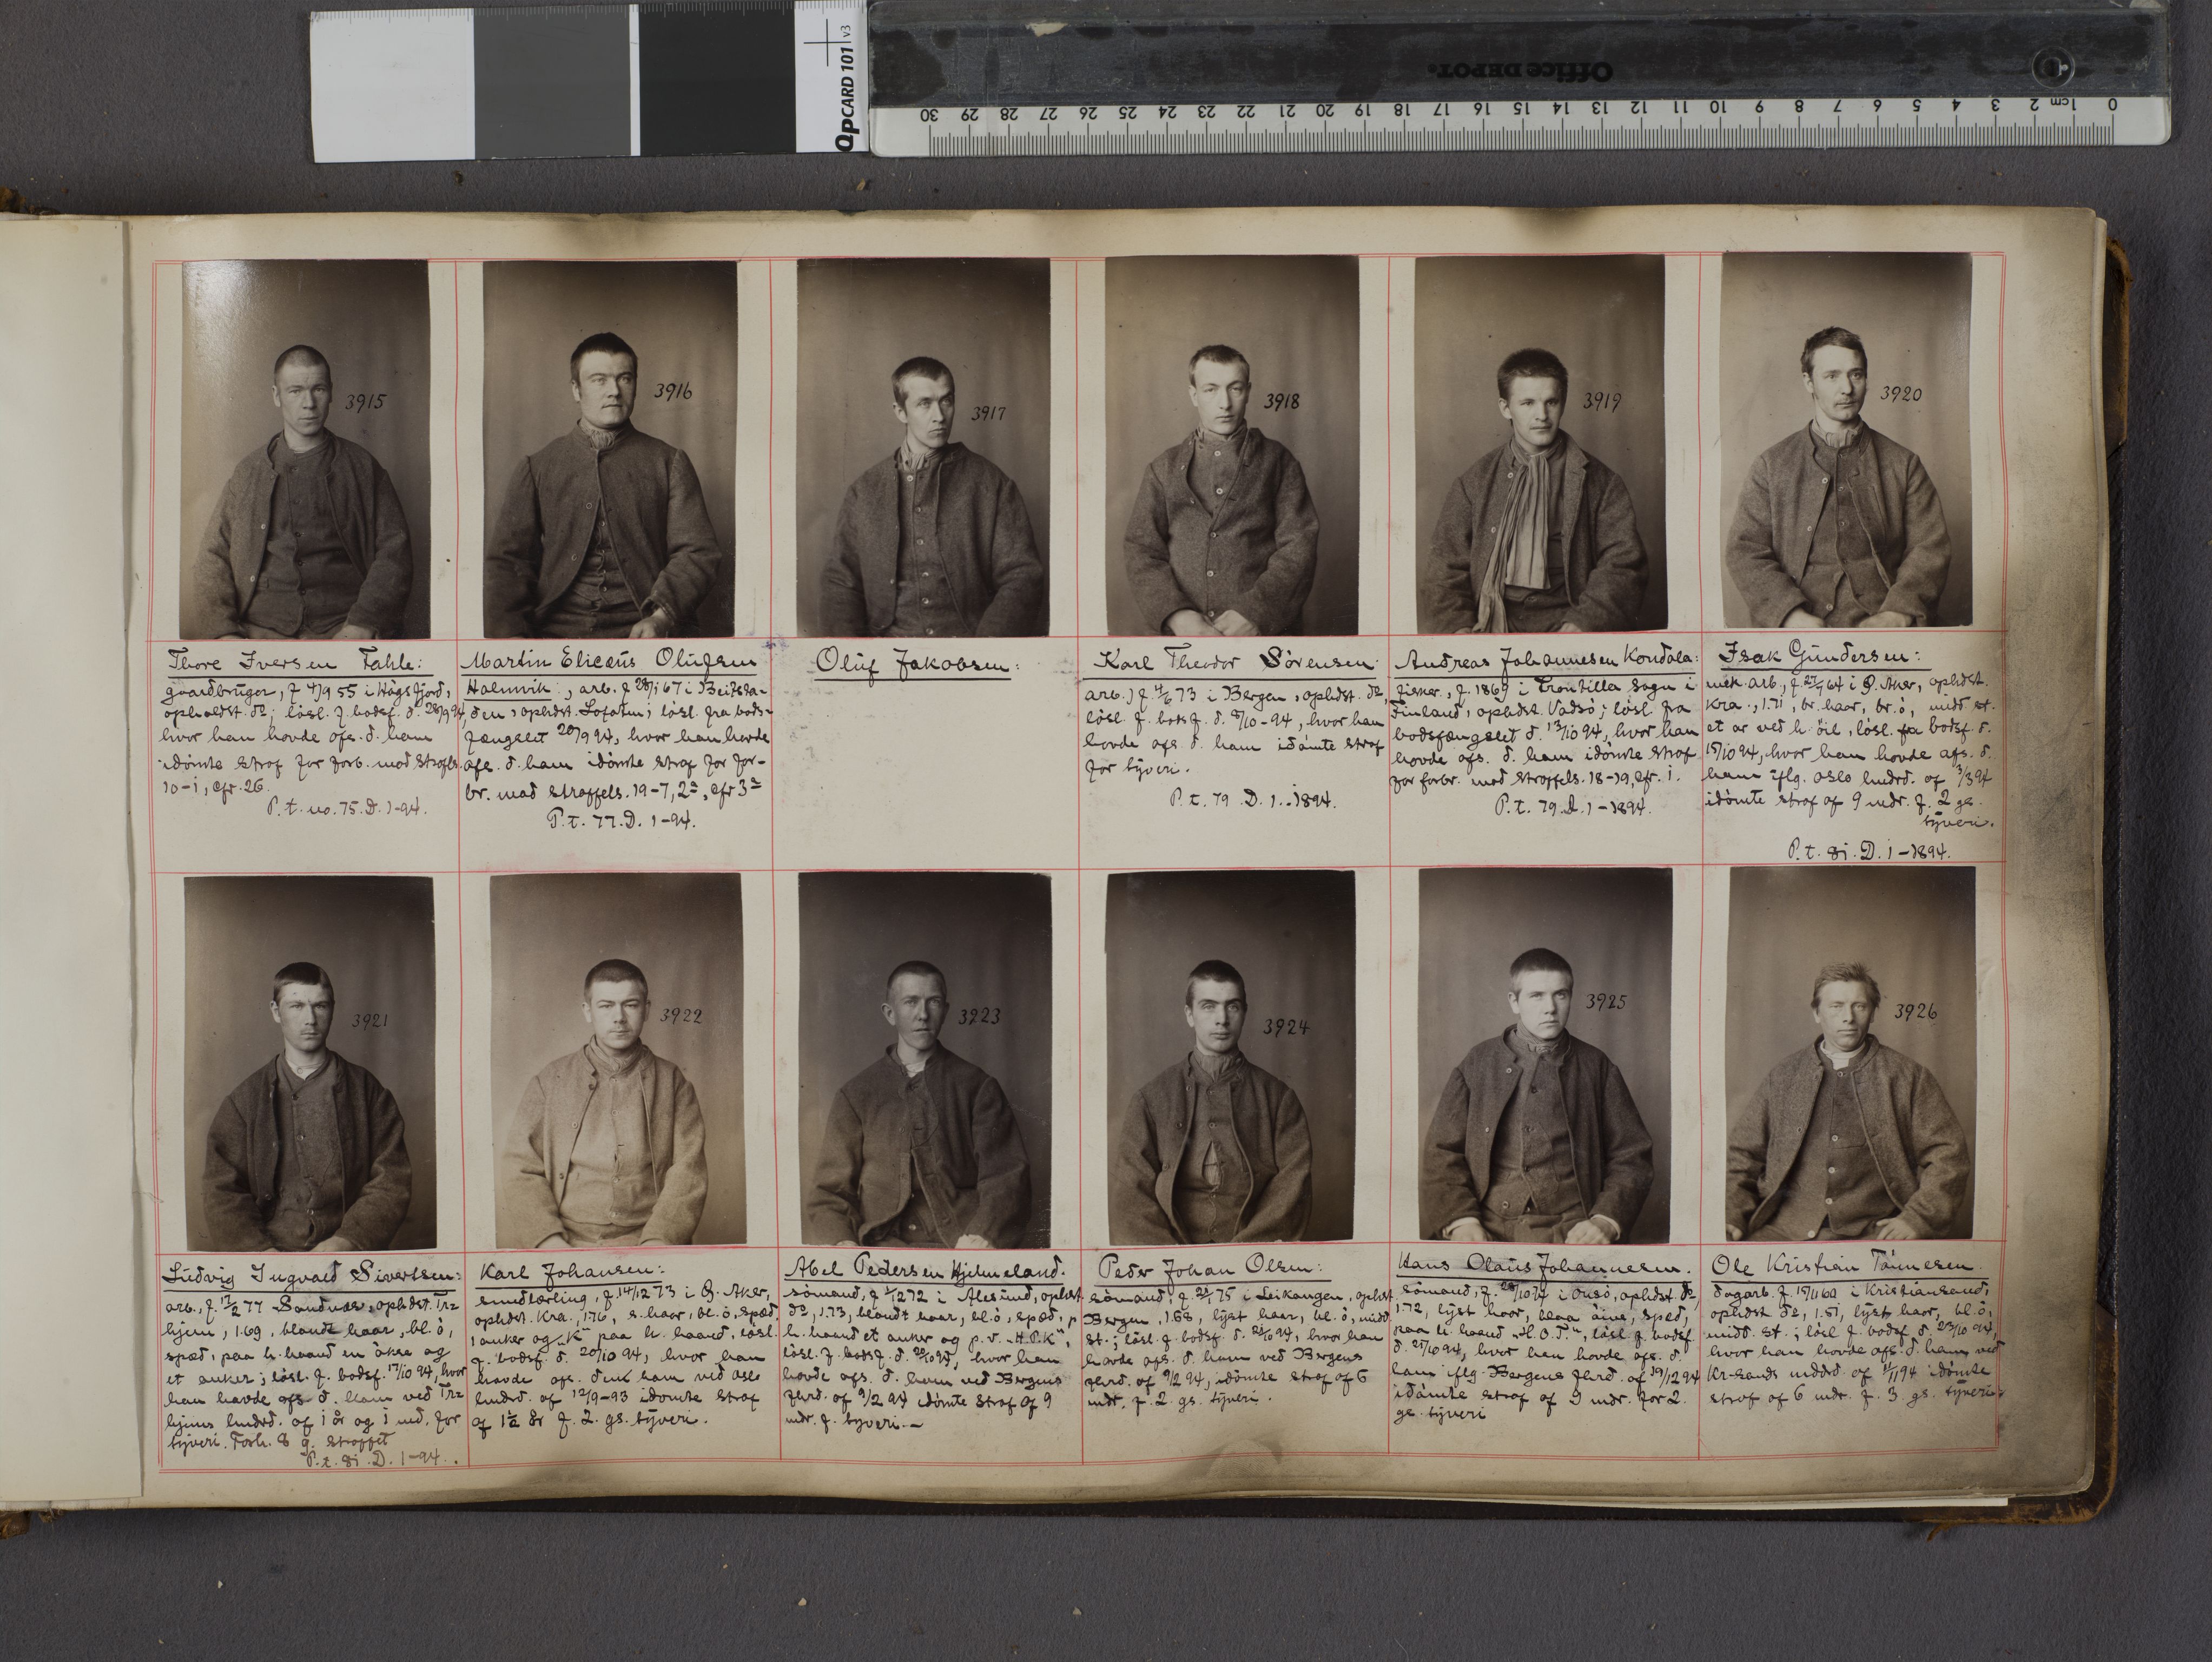 QPCARD 101 v3
Office DEPOT.
0 1cm 2 3 4 5 6 7 8 9 10 11 12 13 14 15 16 17 18 19 20 21 22 23 24 25 26 27 28 29 30
3915
3916
3917
3918
3919
3920
Thore Iversen Tahle:
gaardbruger, f 4/9 55 i Högsfjord,
opholdst. do; lösl. f. bodsf. d. 28/9 94,
hvor han havde afs. d. ham
idömte straf for forb. mod strafls.
10-1, cfr. 26.
P. t. no. 75. D. 1-94.
Martin Eliceüs Olüfsen
Holmvik:, arb. f 28/1 67 i Beitsta-
den, ophdst. Lofoten; lösl. fra bods-
fængslet 28/9 94, hvor han havde
afs. d. ham idömte straf for for-
br. mod straffels. 19-7, 2=, cfr 3=
P. t. 77. D. 1-94.
Olüf Jakobsen:
Karl Theodor Sörensen:
arb., f 4/6 73 i Bergen, ophdst. do,
lösl. f. bodsf. d. 8/10-94, hvor han
havde afs. d. ham idömte straf
for tyveri.
P. t. 79. D. 1.-1894.
Andreas Johannesen Kondola:
fisker, f. 1869 i sogn i
Finland, ophdst. Vadsö; lösl. fra
bodsfængslet d. 13/10 94, hvor han
havde afs. d. ham idömte straf
for forbr. mod straffels. 18-19, cfr. 1.
P. t. 79. D. 1-1894.
Isak Gündersen:
mek. arb, f. 27/7 64 i Ø. Aker, ophdst.
Kra., 1.71, br. haar, br. ö, midd st.
et ar ved h. öil, lösl. fra bodsf. d.
15/10 94, hvor han havde afs. d.
ham iflg. Oslo lmdrd. af 3/3 94
idömte straf af 9 mdr. f. 2 gs.
tyveri.
P. t. 81. D. 1-1894.
3921
3922
3923
3924
3925
3926
Lüdvig Ingvald Sivertsen:
arb., f. 17/2 77 Sandnæs, ophdst. Tr:
hjem, 1.69, blondt haar, bl. ö,
spæd, paa h. haand en ökse og
et anker; lösl. f. bodsf. 17/10 94, hvor
han havde afs. d. ham ved Tr:
hjems lmdrd. af 1 år og 1 md. for
tyveri. Forh. 8 g. straffet
P. t. 81. D. 1-94.
Karl Johansen:
smedlærling, f. 14/12 73 i Ø. Aker,
ophdst. Kra., 1.70, s. haar, bl. ö, spæd,
1 anker og „K“ paa h. haand, lösl.
f. bodsf. d. 20/10 94, hvor han
havde afs. den ham ved Oslo
lmdrd. af 12/9-93 idömte straf
af 1½ år f. 2. gs. tyveri.
Abel Pedersen Hjelmeland.
sömand, f 1/12 72 i Alesund, ophdst
do, 1.73, blondt haar, bl. ö, spæd, p
h. haand et anker og p. v. „H.P.K“,
lösl. f. bodsf. d. 20/10 94, hvor han
havde afs. d. ham ved Bergens
fhrd. af 9/2 94 idömte straf af 9
mdr. f. tyveri.-
Peder Johan Olsen:
sömand, f. 22/1 75 i Leikangen, ophdst
Bergen, 1.68, lyst haar, bl. ö, midd
st.; lösl. f. bodsf. d. 22/10 94, hvor han
havde afs. d. ham ved Bergens
fhrd. af 9/2 94, idömte straf af 6
mdr. f. 2. gs. tyveri.
Hans Olaüs Johannesen.
sömand, f. 28/10 74 i Onsö, ophdst. do,
1.72, lyst haar, blaa öine, spæd,
paa h. haand „H.O.J.“, lösl. f. bodsf
d. 25/10 94, hvor han havde afs. d.
ham iflg. Bergens fhrd. af 19/12 94
idömte straf af 9 mdr. for 2.
gs. tyveri
Ole Kristian Tönnesen.
dagarb. f. 15/11 60 i Kristiansand,
ophdst do, 1.51, lyst haar, bl. ö,
midd. st.; lösl f. bodsf d. 23/10 94,
hvor han havde afs. d. ham ved
Kr.sands mddrd. af 11/1 94 idömte
straf af 6 mdr. f. 3. gs. tyveri.